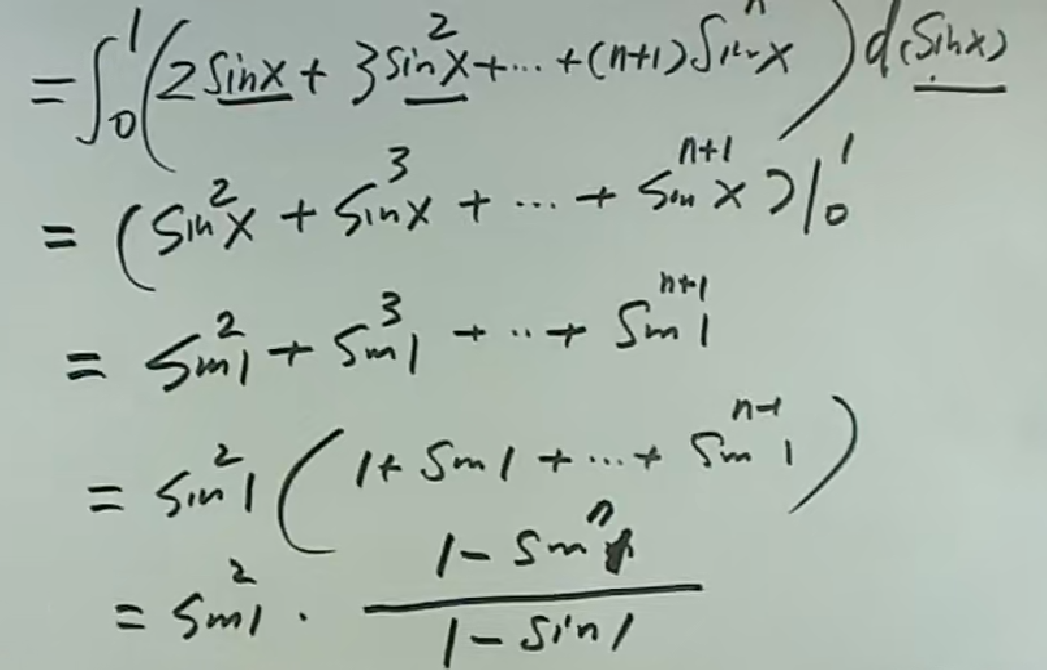 = ∫₀¹ (2 sinx + 3 sin²x + ... + (n+1) sinⁿx) d(sinx)
= (sin²x + sin³x + ... + sinⁿ⁺¹x)|₀¹
= sin²1 + sin³1 + ... + sinⁿ⁺¹1
= sin²1 (1 + sin1 + ... + sinⁿ⁻¹1)
= sin²1 · (1 - sinⁿ1)/(1 - sin1)